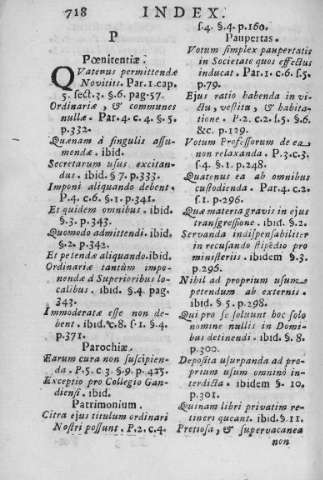 718 INDEX.
P
Pœnitentiæ.
Quatenus permittendæ
Novitiis. Par. 1. cap.
5. sect. 3. §. 6. pag. 57.
Ordinariæ, & communes
nullæ. Par. 4. c. 4. §. 5.
p. 332.
Quænam à singulis assu-
mendæ. ibid.
Secretarum usus excitan-
dus. ibid. §. 7. p. 333.
Imponi aliquando debent.
P. 4. c. 6. §. 1. p. 341.
Et quidem omnibus. ibid.
§. 3. p. 343.
Quomodo admittendi. ibid.
§. 2. p. 342.
Et petendæ aliquando. ibid.
Ordinariæ tantùm impo-
nendæ à Superioribus lo-
calibus. ibid. §. 4. pag.
343.
Immoderatæ esse non de-
bent. ibid. c. 8. s. 1. §. 4.
p. 371.
Parochiæ.
Earum cura non suscipien-
da. P. 5. c. 3. §. 9. p. 423.
Exceptio pro Collegio Gan-
diensi. ibid.
Patrimonium.
Citra ejus titulum ordinari
Nostri possunt. P. 2. c. 4.
s. 4. §. 4. p. 160.
Paupertas.
Votum simplex paupertatis
in Societate quos effectus
inducat. Par. 1. c. 6. s. 5.
p. 79.
Ejus ratio habenda in vi-
ctu, vestitu, & habita-
tione. P. 2. c. 2. s. 5. §. 6.
&c. p. 129.
Votum Professorum de ea
non relaxanda. P. 3. c. 3.
s. 4. §. 1. p. 248.
Quatenus ea ab omnibus
custodienda. Par. 4. c. 2.
s. 1. p. 296.
Quæ materia gravis in ejus
transgressione. ibid. §. 2.
Servanda indispensabiliter
in recusando stipēdio pro
ministeriis. ibidem §. 3.
p. 296.
Nihil ad proprium usum
petendum ab externis.
ibid. §. 5. p. 298.
Qui pro se solvunt hoc solo
nomine nulli in Domi-
bus detinendi. ibid. §. 8.
p. 300.
Deposita usurpanda ad pro-
prium usum omninò in-
terdicta. ibidem §. 10.
p. 301.
Quinam libri privatim re-
tineri queant. ibid. §. 11.
Pretiosa, & supervacanea
non